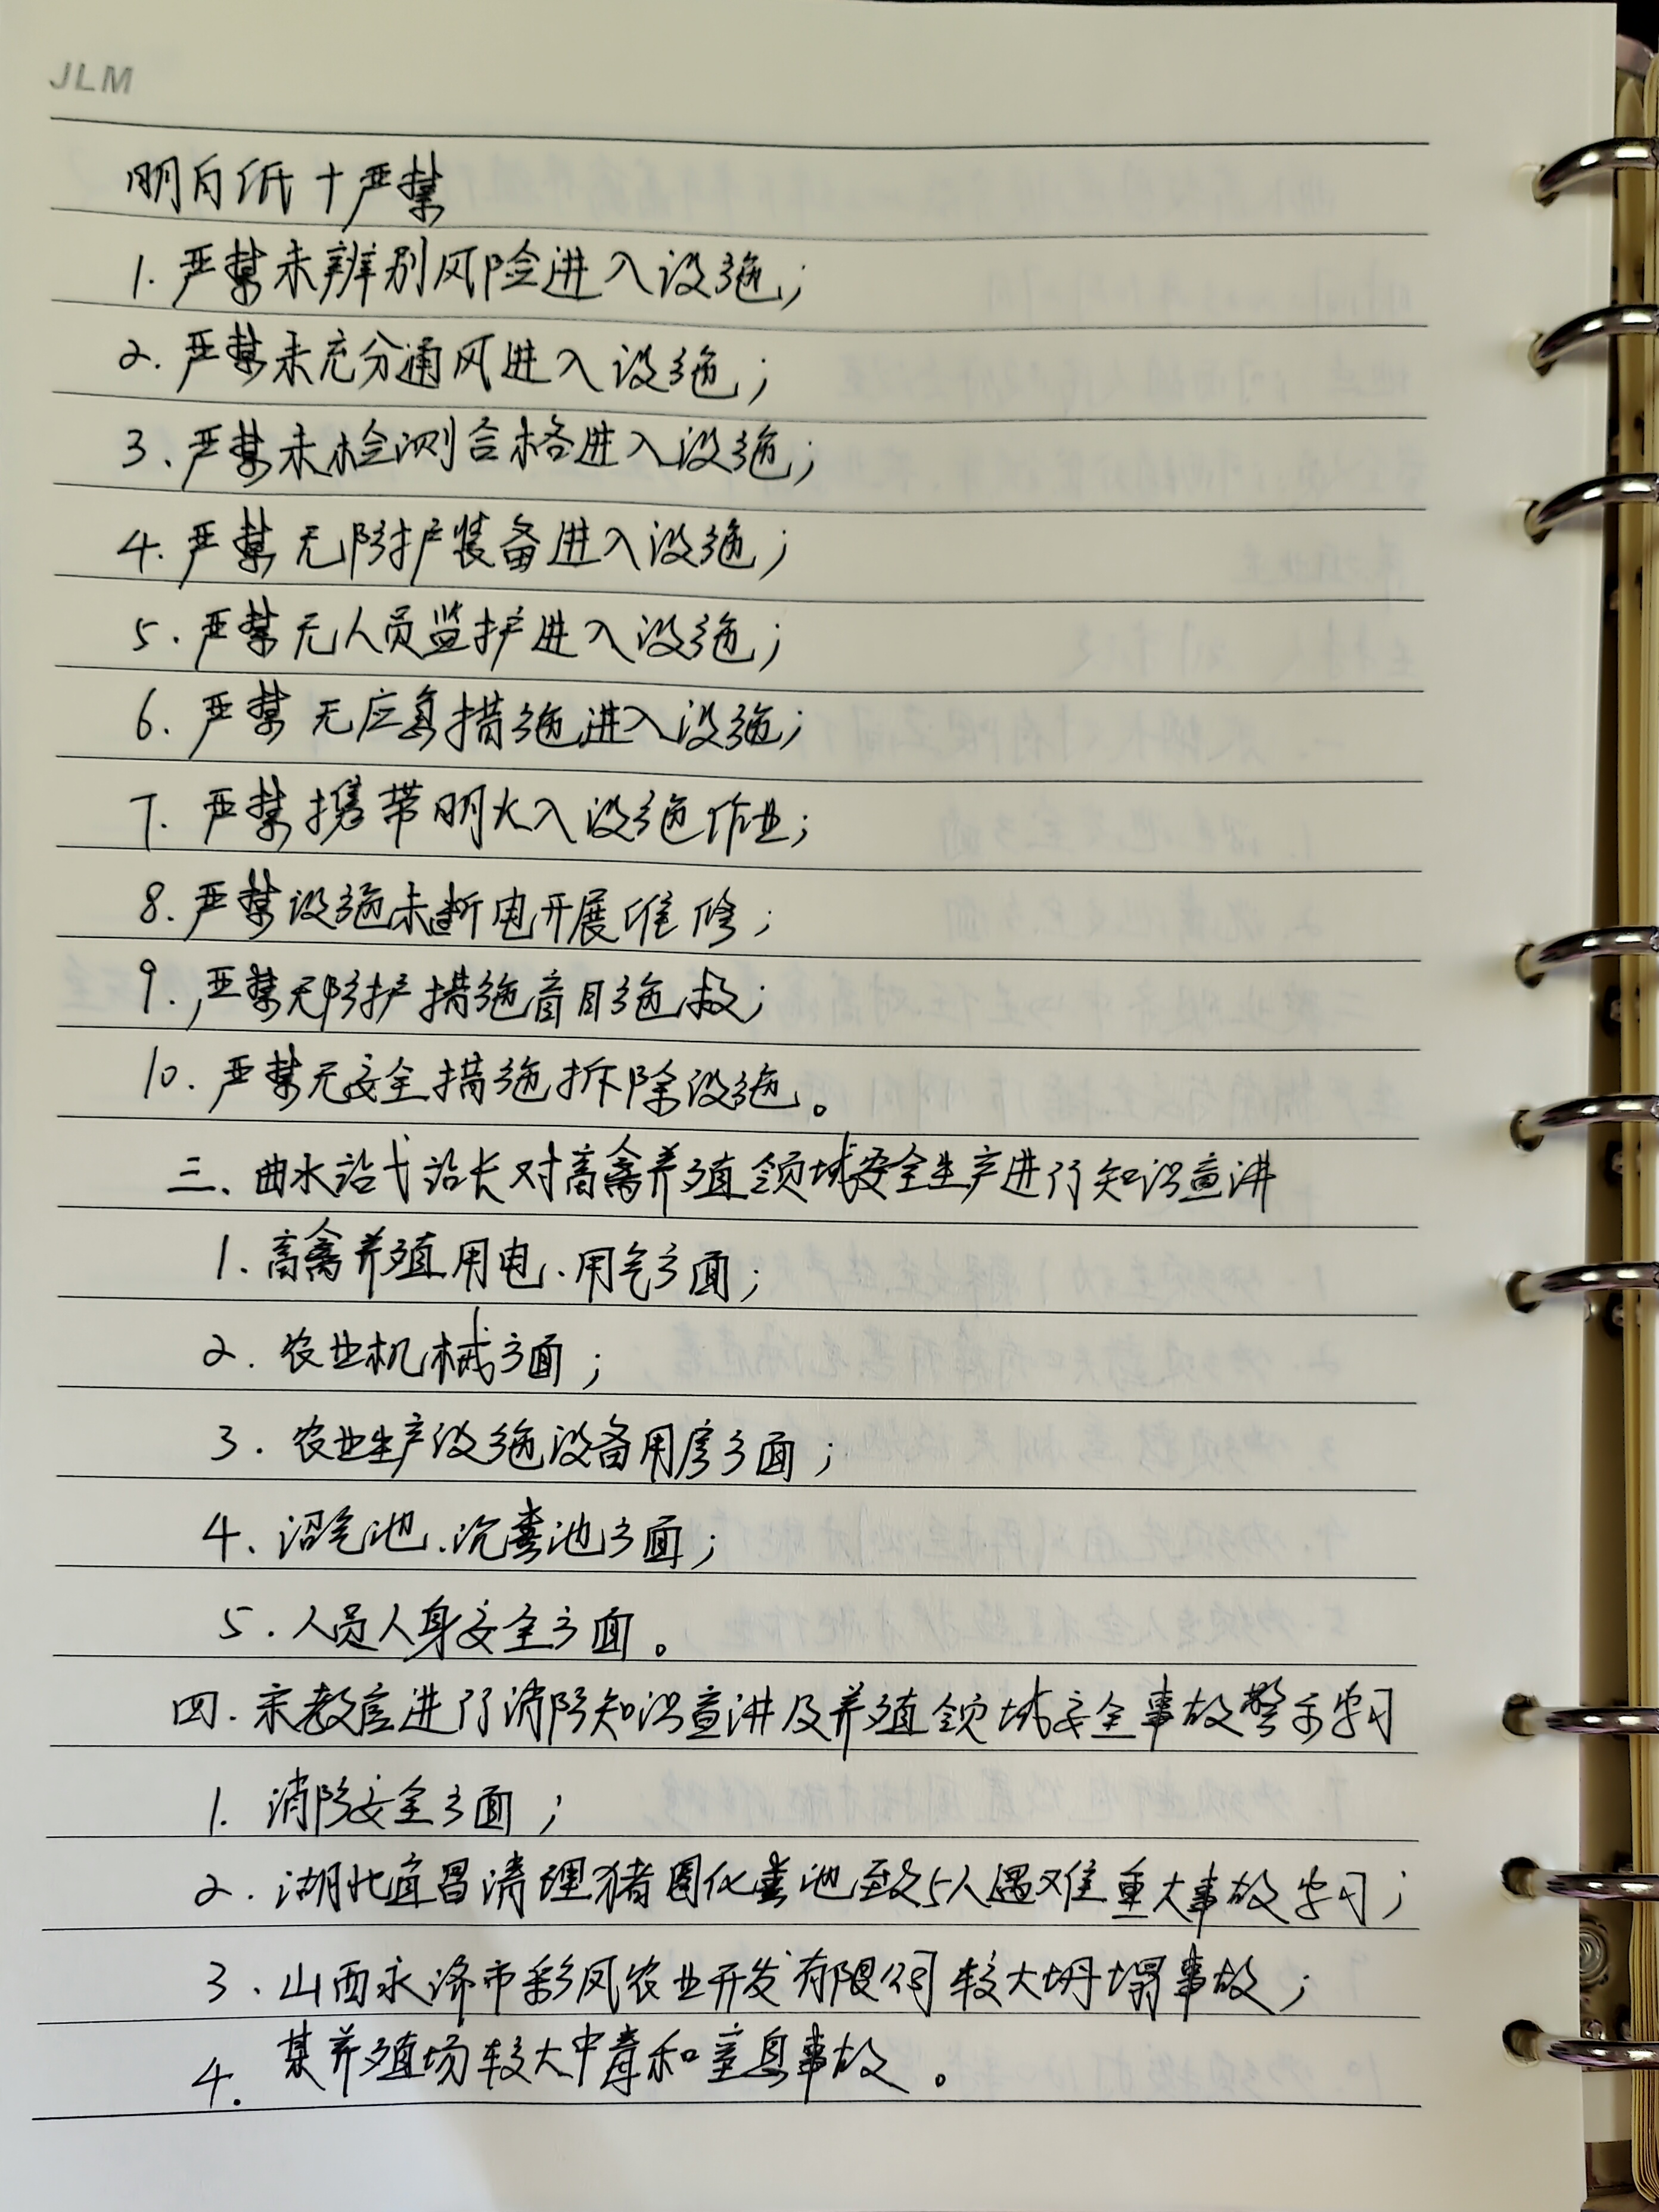 JLM
明白纸十严禁
1. 严禁未辨别风险进入设施;
2. 严禁未充分通风进入设施;
3、严禁未检测合格进入设施;
4. 严禁无防护装备进入设施;
5. 严禁无人员监护进入设施;
6. 严禁无应急措施进入设施;
7. 严禁携带明火入设施作业;
8. 严禁设施未断电开展维修;
9. 严禁无防护措施盲目施救;
10. 严禁无安全措施拆除设施。
三、曲水站 站长对畜禽养殖领域安全生产进行知识宣讲
1. 畜禽养殖用电、用气方面;
2. 农业机械方面;
3. 农业生产设施设备用房方面;
4、沼气池、沉粪池方面;
5. 人员人身安全方面。
四. 宋教官进行消防知识宣讲及养殖领域安全事故警示学习
1. 消防安全方面;
2. 湖北宜昌清理猪圈化粪池至致5人遇难重大事故学习;
3. 山西永济市彩凤农业开发有限公司较大坍塌事故;
4. 某养殖场较大中毒和窒息事故。